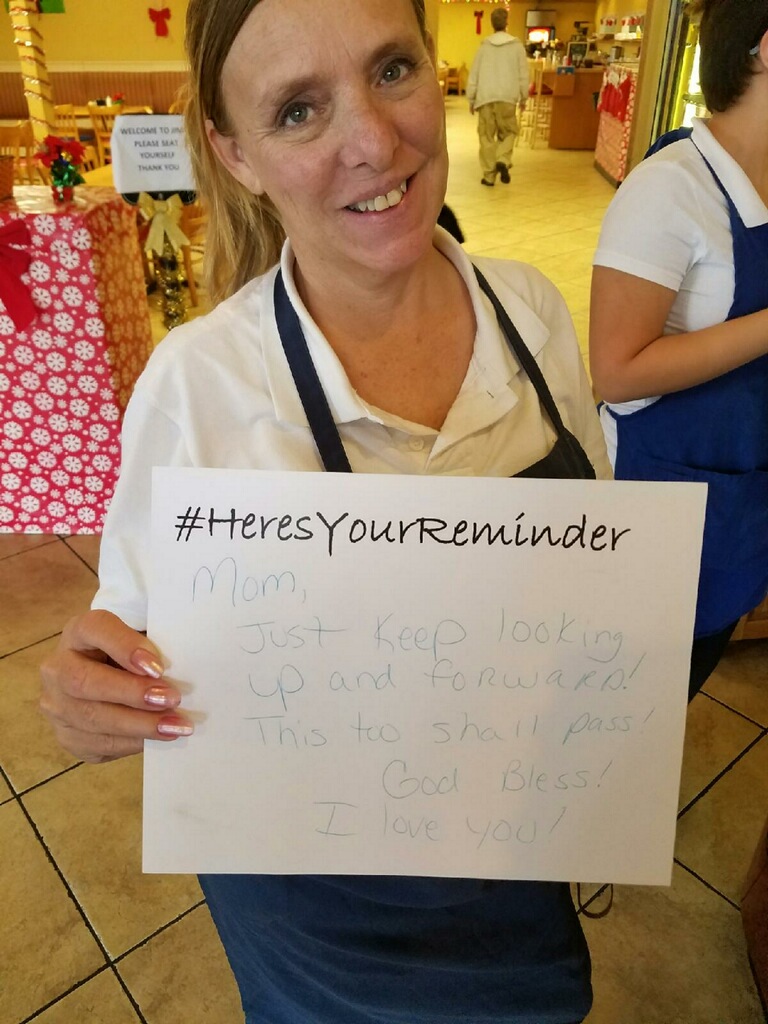 WELCOME TO JIM
PLEASE SEAT
YOURSELF
THANK YOU
#HeresYourReminder
Mom,
Just keep looking
up and forward!
This too shall pass!
God Bless!
I love you!